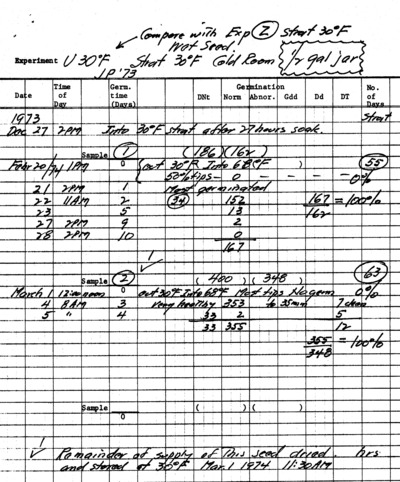 Compare with Exp Z Strat 30°F
Not Seed.
Experiment U 30°F Strat 30°F Cold Room 1/2 gal jar
JP '73
Time Germ. Germination No.
Date of time DNt Norm Abnor. Gdd Dd DT of
Day (Days) Days
1973 Strat
Dec 27 2PM Into 30°F strat after 27 hours soak.
Sample 1 (186)(162)
Febr 20/74 1PM 0 out 30°F Into 68°F ) 55
50% tips - 0 - - - - 0%
21 2PM 1 Most germinated
22 11AM 2 34 152 167 = 100%
23 5 13 162
27 2PM 9 2
28 2PM 10 0
167
Sample 2 (400) (348) 63
March 1 12:00 noon 0 out 30°F Into 68°F Most tips No germ 0%
4 8AM 3 very healthy 353 to 35mm 7
5 " 4 33 2 5
33 355 12
355 = 100%
348
Sample ( ) ( )
0
Remainder of supply of This seed dried. hrs
and stored at 30°F Mar. 1 1974 11:30AM